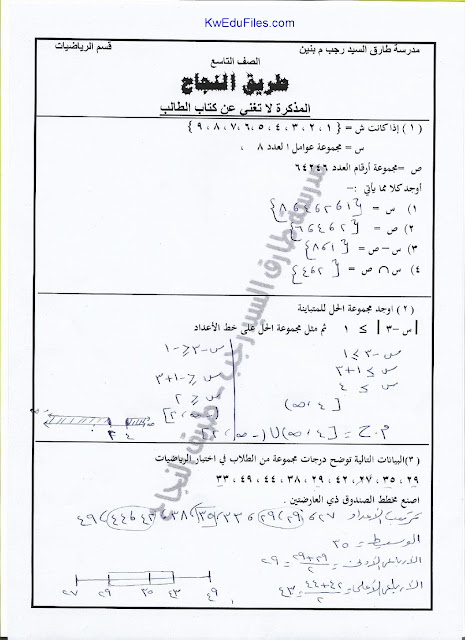 KwEduFiles.com
مدرسة طارق السيد رجب م بنين
قسم الرياضيات
الصف التاسع
طريق النجاح
المذكرة لا تغني عن كتاب الطالب
(١) إذا كانت ش = { ١ ، ٢ ، ٣ ، ٤ ، ٥ ، ٦ ، ٧ ، ٨ ، ٩ }
س = مجموعة عوامل العدد ٨ ،
ص = مجموعة أرقام العدد ٦٤٢٤٦
أوجد كلا مما يأتي :-
١) س = { ١ ، ٢ ، ٤ ، ٨ }
٢) ص = { ٢ ، ٤ ، ٦ }
٣) س – ص = { ١ ، ٨ }
٤) س ∩ ص = { ٢ ، ٤ }
(٢) اوجد مجموعة الحل للمتباينة
| س – ٣ | ≥ ١ ثم مثل مجموعة الحل على خط الأعداد
س – ٣ ≥ ١
س ≥ ١ + ٣
س ≥ ٤
[ ٤ ، ∞ )
س – ٣ ≤ – ١
س ≤ – ١ + ٣
س ≤ ٢
( – ∞ ، ٢ ]
م . ح = [ ٤ ، ∞ ) ∪ ( – ∞ ، ٢ ]
٢ ٤
(٣) البيانات التالية توضح درجات مجموعة من الطلاب في اختبار الرياضيات
٢٩ ، ٣٥ ، ٢٧ ، ٤٢ ، ٢٩ ، ٣٨ ، ٤٤ ، ٤٩ ، ٣٣
اصنع مخطط الصندوق ذي العارضتين .
ترتيب الأعداد ٢٧ ، ٢٩ ، ٢٩ ، ٣٣ ، ٣٥ ، ٣٨ ، ٤٢ ، ٤٤ ، ٤٩
الوسيط = ٣٥
الأرباعي الأدنى = ٢٩+٢٩ / ٢ = ٢٩
الأرباعي الأعلى = ٤٢+٤٤ / ٢ = ٤٣
٢٧ ٢٩ ٣٥ ٤٣ ٤٩
مدرسة طارق السيد رجب - طريق النجاح